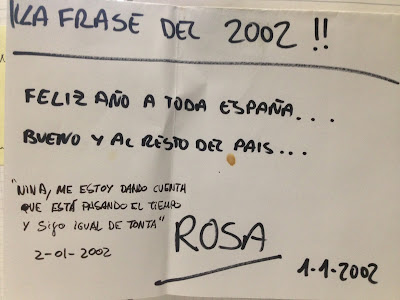 ¡¡LA FRASE DEL 2002 !!
FELIZ AÑO A TODA ESPAÑA...
BUENO Y AL RESTO DEL PAIS...
"NINA, ME ESTOY DANDO CUENTA
QUE ESTÁ PASANDO EL TIEMPO
Y SIGO IGUAL DE TONTA"
2-01-2002
ROSA
1-1-2002